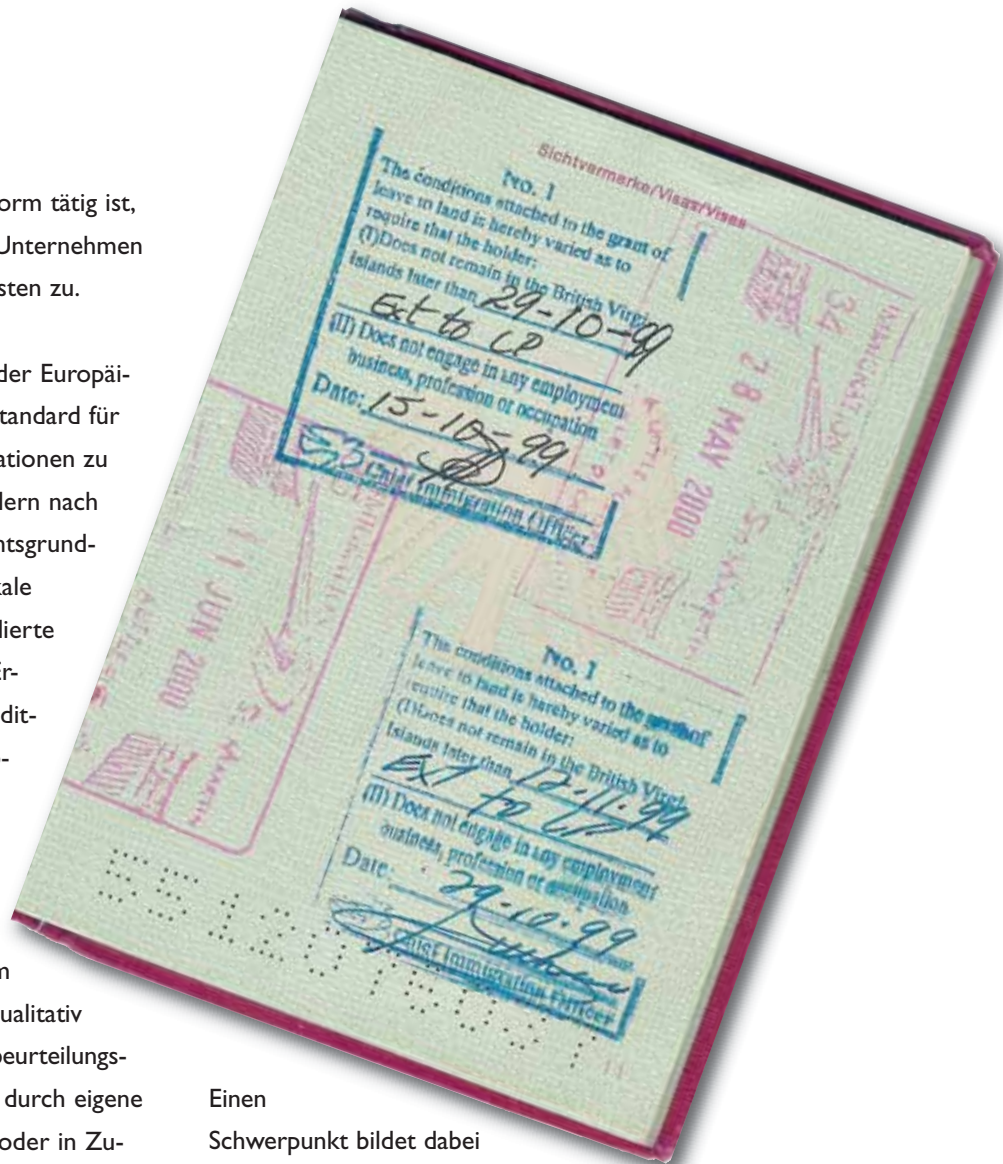 orm tätig ist,
Unternehmen
sten zu.
der Europäi-
tandard für
ationen zu
dern nach
ntsgrund-
kale
dierte
Er-
dit-
m
ualitativ
beurteilungs-
durch eigene
oder in Zu-
Einen
Schwerpunkt bildet dabei
Sichtvermerke/Visas/Visas
No. 1
The conditions attached to the grant of
leave to land is hereby varied as to
require that the holder:
(I)Does not remain in the British Virgi
Islands later than 29-10-99
Ext to CP
(II) Does not engage in any employment
business, profession or occupation
Date: 15-10-99
Chief Immigration Officer
34
28 MAY 2000
11 JUN 2000
No. 1
The conditions attached to the
leave to land is hereby varied as to
require that the holder:
(I)Does not remain in the British Virgi
Islands later than 12.11.99
EXT TO CP
(II) Does not engage in any employment
business, profession or occupation
Date: 29.10.99
Chief Immigration Officer